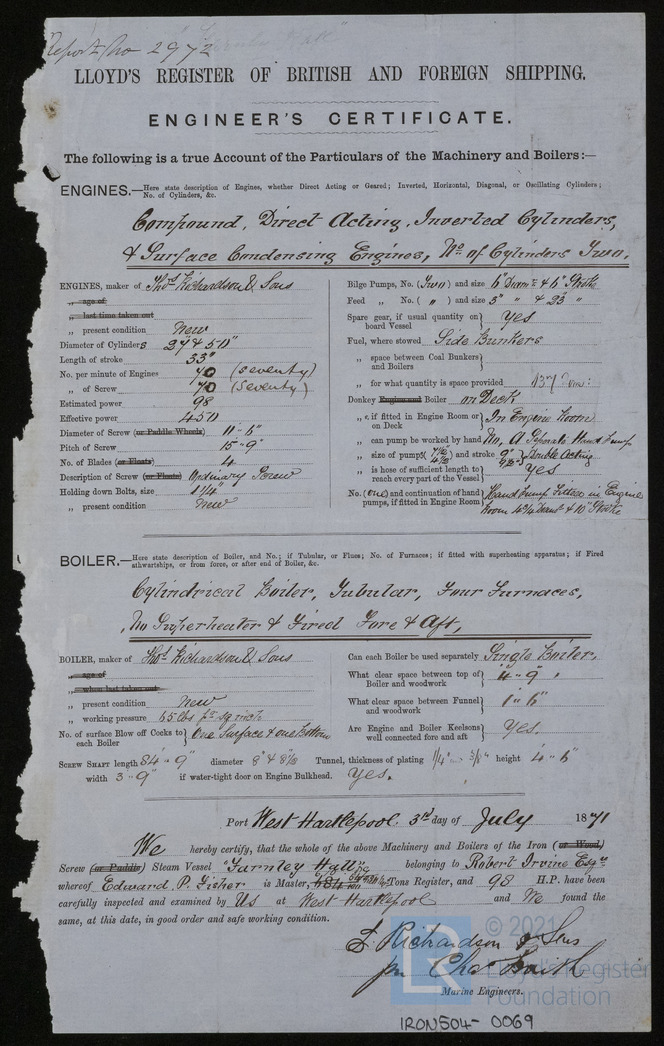 Report No 2972
LLOYD'S REGISTER OF BRITISH AND FOREIGN SHIPPING.
ENGINEER'S CERTIFICATE.
The following is a true Account of the Particulars of the Machinery and Boilers:—
ENGINES.—Here state description of Engines, whether Direct Acting or Geared; Inverted, Horizontal, Diagonal, or Oscillating Cylinders;
No. of Cylinders, &c.
Compound, Direct Acting, Inverted Cylinders,
& Surface Condensing Engines, No. of Cylinders Two.
ENGINES, maker of Thos. Richardson & Sons
„ age of
„ last time taken out
„ present condition New
Diameter of Cylinders 27 & 50"
Length of stroke 33"
No. per minute of Engines 70 (seventy)
„ of Screw 70 (seventy)
Estimated power 98
Effective power 450
Diameter of Screw (or Paddle Wheels) 11" 6"
Pitch of Screw 15" 9"
No. of Blades (or Floats) 4
Description of Screw (or Floats) Ordinary Screw
Holding down Bolts, size 1 1/4"
„ present condition New
Bilge Pumps, No. (Two) and size 6" Diamr. & 6" Stroke
Feed „ No. ( „ ) and size 3" „ & 23" „
Spare gear, if usual quantity on board Vessel Yes
Fuel, where stowed Side Bunkers
„ space between Coal Bunkers and Boilers
„ for what quantity is space provided 137 Tons:
Donkey Engine and Boiler on Deck
„ if fitted in Engine Room or on Deck In Engine Room
„ can pump be worked by hand No, A Seperate Hand Pump
„ size of pump and stroke 9" Double Acting
„ is hose of sufficient length to reach every part of the Vessel Yes
No. (one) and continuation of hand pumps, if fitted in Engine Room Hand Pump Fitted in Engine
Room 4 1/4 Diamr. & 10" Stroke
BOILER.—Here state description of Boiler, and No.; if Tubular, or Flues; No. of Furnaces; if fitted with superheating apparatus; if Fired
athwartships, or from force, or after end of Boiler, &c.
Cylindrical Boiler, Tubular, Four Furnaces,
No Superheater & Fired Fore & Aft,
BOILER, maker of Thos. Richardson & Sons
„ age of
„ when last taken out
„ present condition New
„ working pressure 65 lbs pr sq inch
No. of surface Blow off Cocks to each Boiler One Surface & one Bottom
Can each Boiler be used separately Single Boiler.
What clear space between top of Boiler and woodwork 4" 9"
What clear space between Funnel and woodwork 1" 6"
Are Engine and Boiler Keelsons well connected fore and aft Yes.
SCREW SHAFT length 84" 9" diameter 8" & 8 1/8 Tunnel, thickness of plating 1/4" 5/16" height 4" 6"
width 3" 9" if water-tight door on Engine Bulkhead. Yes.
Port West Hartlepool 3rd day of July 1871
We hereby certify, that the whole of the above Machinery and Boilers of the Iron (or Wood)
Screw (or Paddle) Steam Vessel "Farnley Hall" belonging to Robert Irvine Esqre
whereof Edward P. Fisher is Master, Tons Register, and 98 H.P. have been
carefully inspected and examined by Us at West Hartlepool and We found the
same, at this date, in good order and safe working condition.
T. Richardson & Sons
pr Chas Smith
Marine Engineers.
© 2021
LR Lloyd's Register
Foundation
IRON504-0069